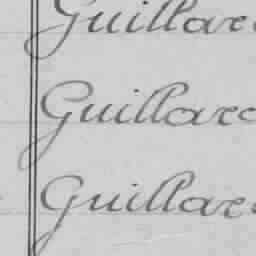 Guillare
Guillare
Guillare